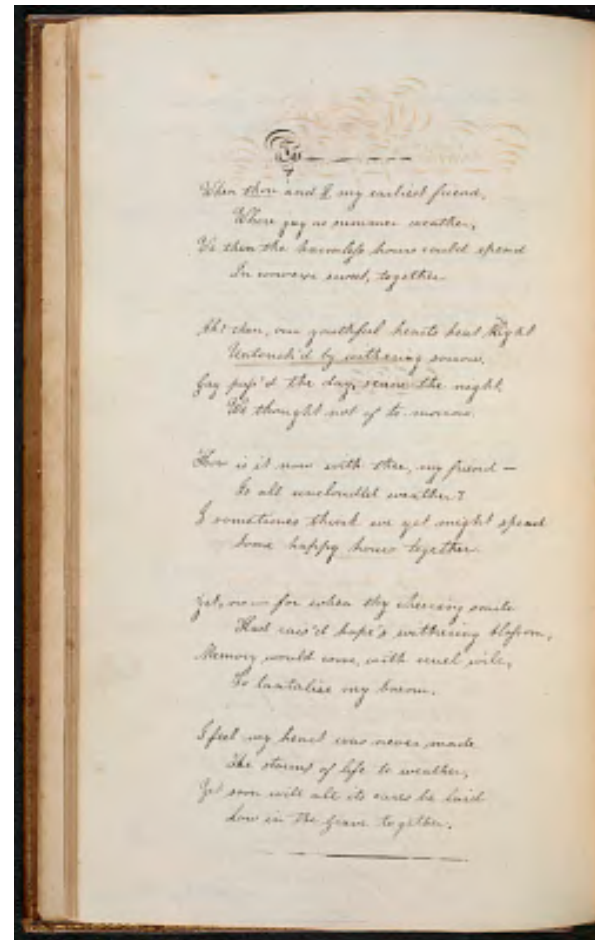 To — — — —
When thou and I my earliest friend,
Where gay as summer weather,
We then the harmless hours could spend
In converse sweet, together
Ah! then, our youthful hearts beat light
Untouch'd by withering sorrow,
Gay pass'd the day, serene the night,
We thought not of to-morrow.
How is it now with thee, my friend —
Is all unclouded weather?
I sometimes think we yet might spend
Some happy hours together.
Yet, no — for when thy cheering smile
Had rais'd hope's withering blossom,
Memory would come, with cruel wile,
To tantalise my bosom.
I feel my heart was never made
The storms of life to weather,
Yet soon will all its cares be laid
Low in the grave together.